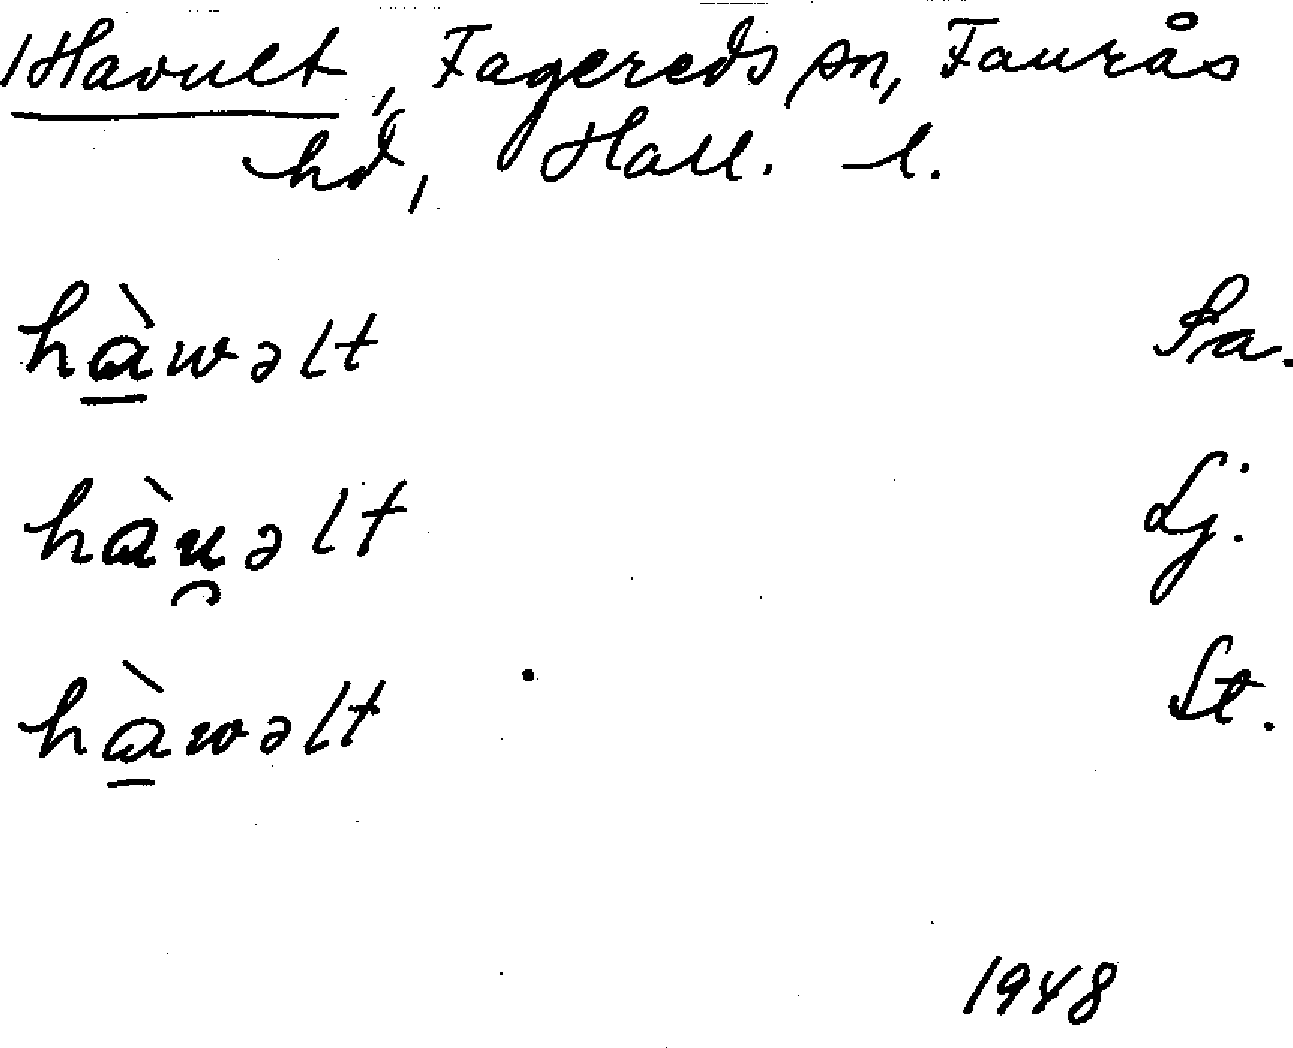 Havult, Fagereds sn, Faurås
hd, Hall. l.
hа̱̀wəlt Fa.
hàu̯əlt Lj.
hа̱̀wəlt St.
1948